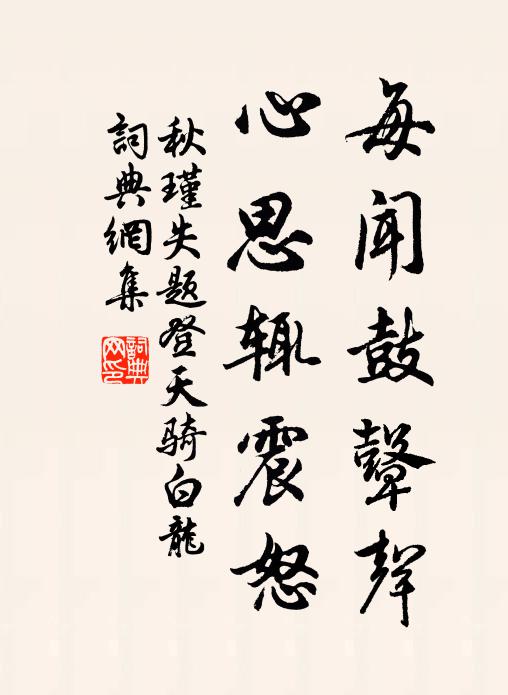 每闻鼓鼙聲
心思辄震怒
秋瑾失题登天骑白龍
詞典網集
詞典网印